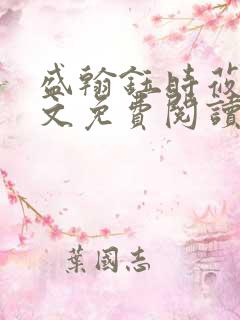 盛翰鈺時莜
文免費閱讀
葉國志